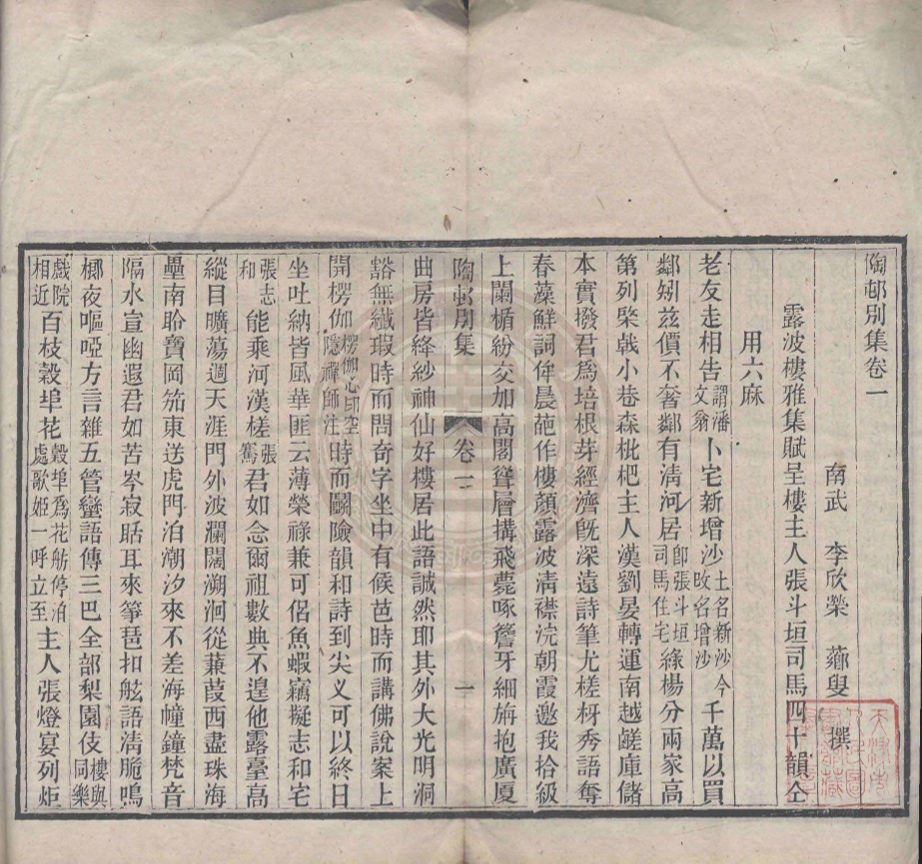 陶邨別集卷一
南武　李欣榮　薌叟　撰
露波樓雅集賦呈樓主人張斗垣司馬四十韻仝
用六麻
老友走相告謂潘文翁卜宅新增沙土名新沙今改名增沙千萬以買
鄰矧茲價不奢鄰有清河居卽張斗垣司馬住宅綠楊分兩家高
第列棨戟小巷森枇杷主人漢劉晏轉運南越鹺庫儲
本實撥君爲培根芽經濟旣深遠詩筆尤槎枒秀語奪
春藻鮮詞侔晨葩作樓顏露波淸襟浣朝霞邀我拾級
上闌楯紛交加高閣聳層搆飛甍啄簷牙細旃抱廣厦
陶邨別集　卷一　一
曲房皆絳紗神仙好樓居此語誠然耶其外大光明洞
豁無纖瑕時而問奇字坐中有候芭時而講佛說案上
開楞伽楞伽心印空隱禪師注時而鬬險韻和詩到尖义可以終日
坐吐納皆風華匪云薄榮祿兼可侶魚蝦竊擬志和宅
張志和能乘河漢槎張騫君如念爾祖數典不遑他露臺高
縱目曠蕩週天涯門外波瀾闊溯洄從蒹葭西盡珠海
壘南聆寶岡笳東送虎門泊潮汐來不差海幢鐘梵音
隔水宣幽遐君如苦岑寂聒耳來箏琶扣舷語淸脆鳴
榔夜嘔啞方言雜五管蠻語傳三巴全部梨園伎樓與同樂
戲院相近百枝穀埠花穀埠爲花舫停泊處歌姬一呼立至主人張燈宴列炬